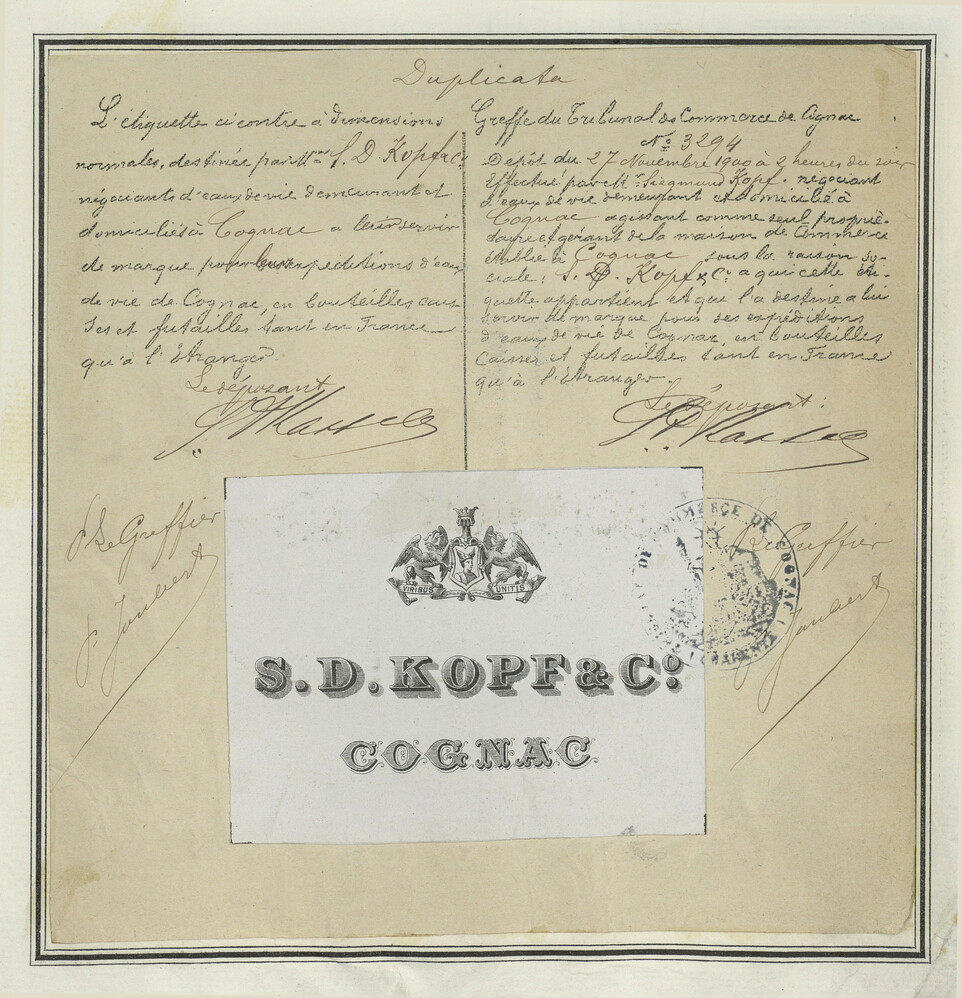 Duplicata
L'étiquette ci contre à dimensions
normales, destinée par Mrs S. D. Kopf & Cie
négociants d'eaux de vie demeurant et
domiciliés à Cognac a leur servir
de marque pour leurs expéditions d'eaux
de vie de Cognac, en bouteilles cais-
ses et futailles tant en France
qu'à l'étranger.
Le déposant
Greffe du Tribunal de Commerce de Cognac
No 3294
Dépôt du 27 Novembre 1900 à 2 heures du soir
Effectué par Mr Siegmund Kopf négociant
d'eaux de vie demeurant et domicilié à
Cognac agissant comme seul proprié-
taire et gérant de la maison de Commerce
établie à Cognac sous la raison so-
ciale: S. D. Kopf & Co a qui cette éti-
quette appartient et que l'a destiné a lui
servir de marque pour ses expéditions
d'eaux de vie de Cognac, en bouteilles
Caisses et futailles tant en France
qu'à l'étranger.
Le Déposant:
Le Greffier
Joubert
VIRIBUS UNITIS
S. D. KOPF & Co.
COGNAC
COMMERCE DE COGNAC
(CHARENTE)
Le Greffier
Joubert